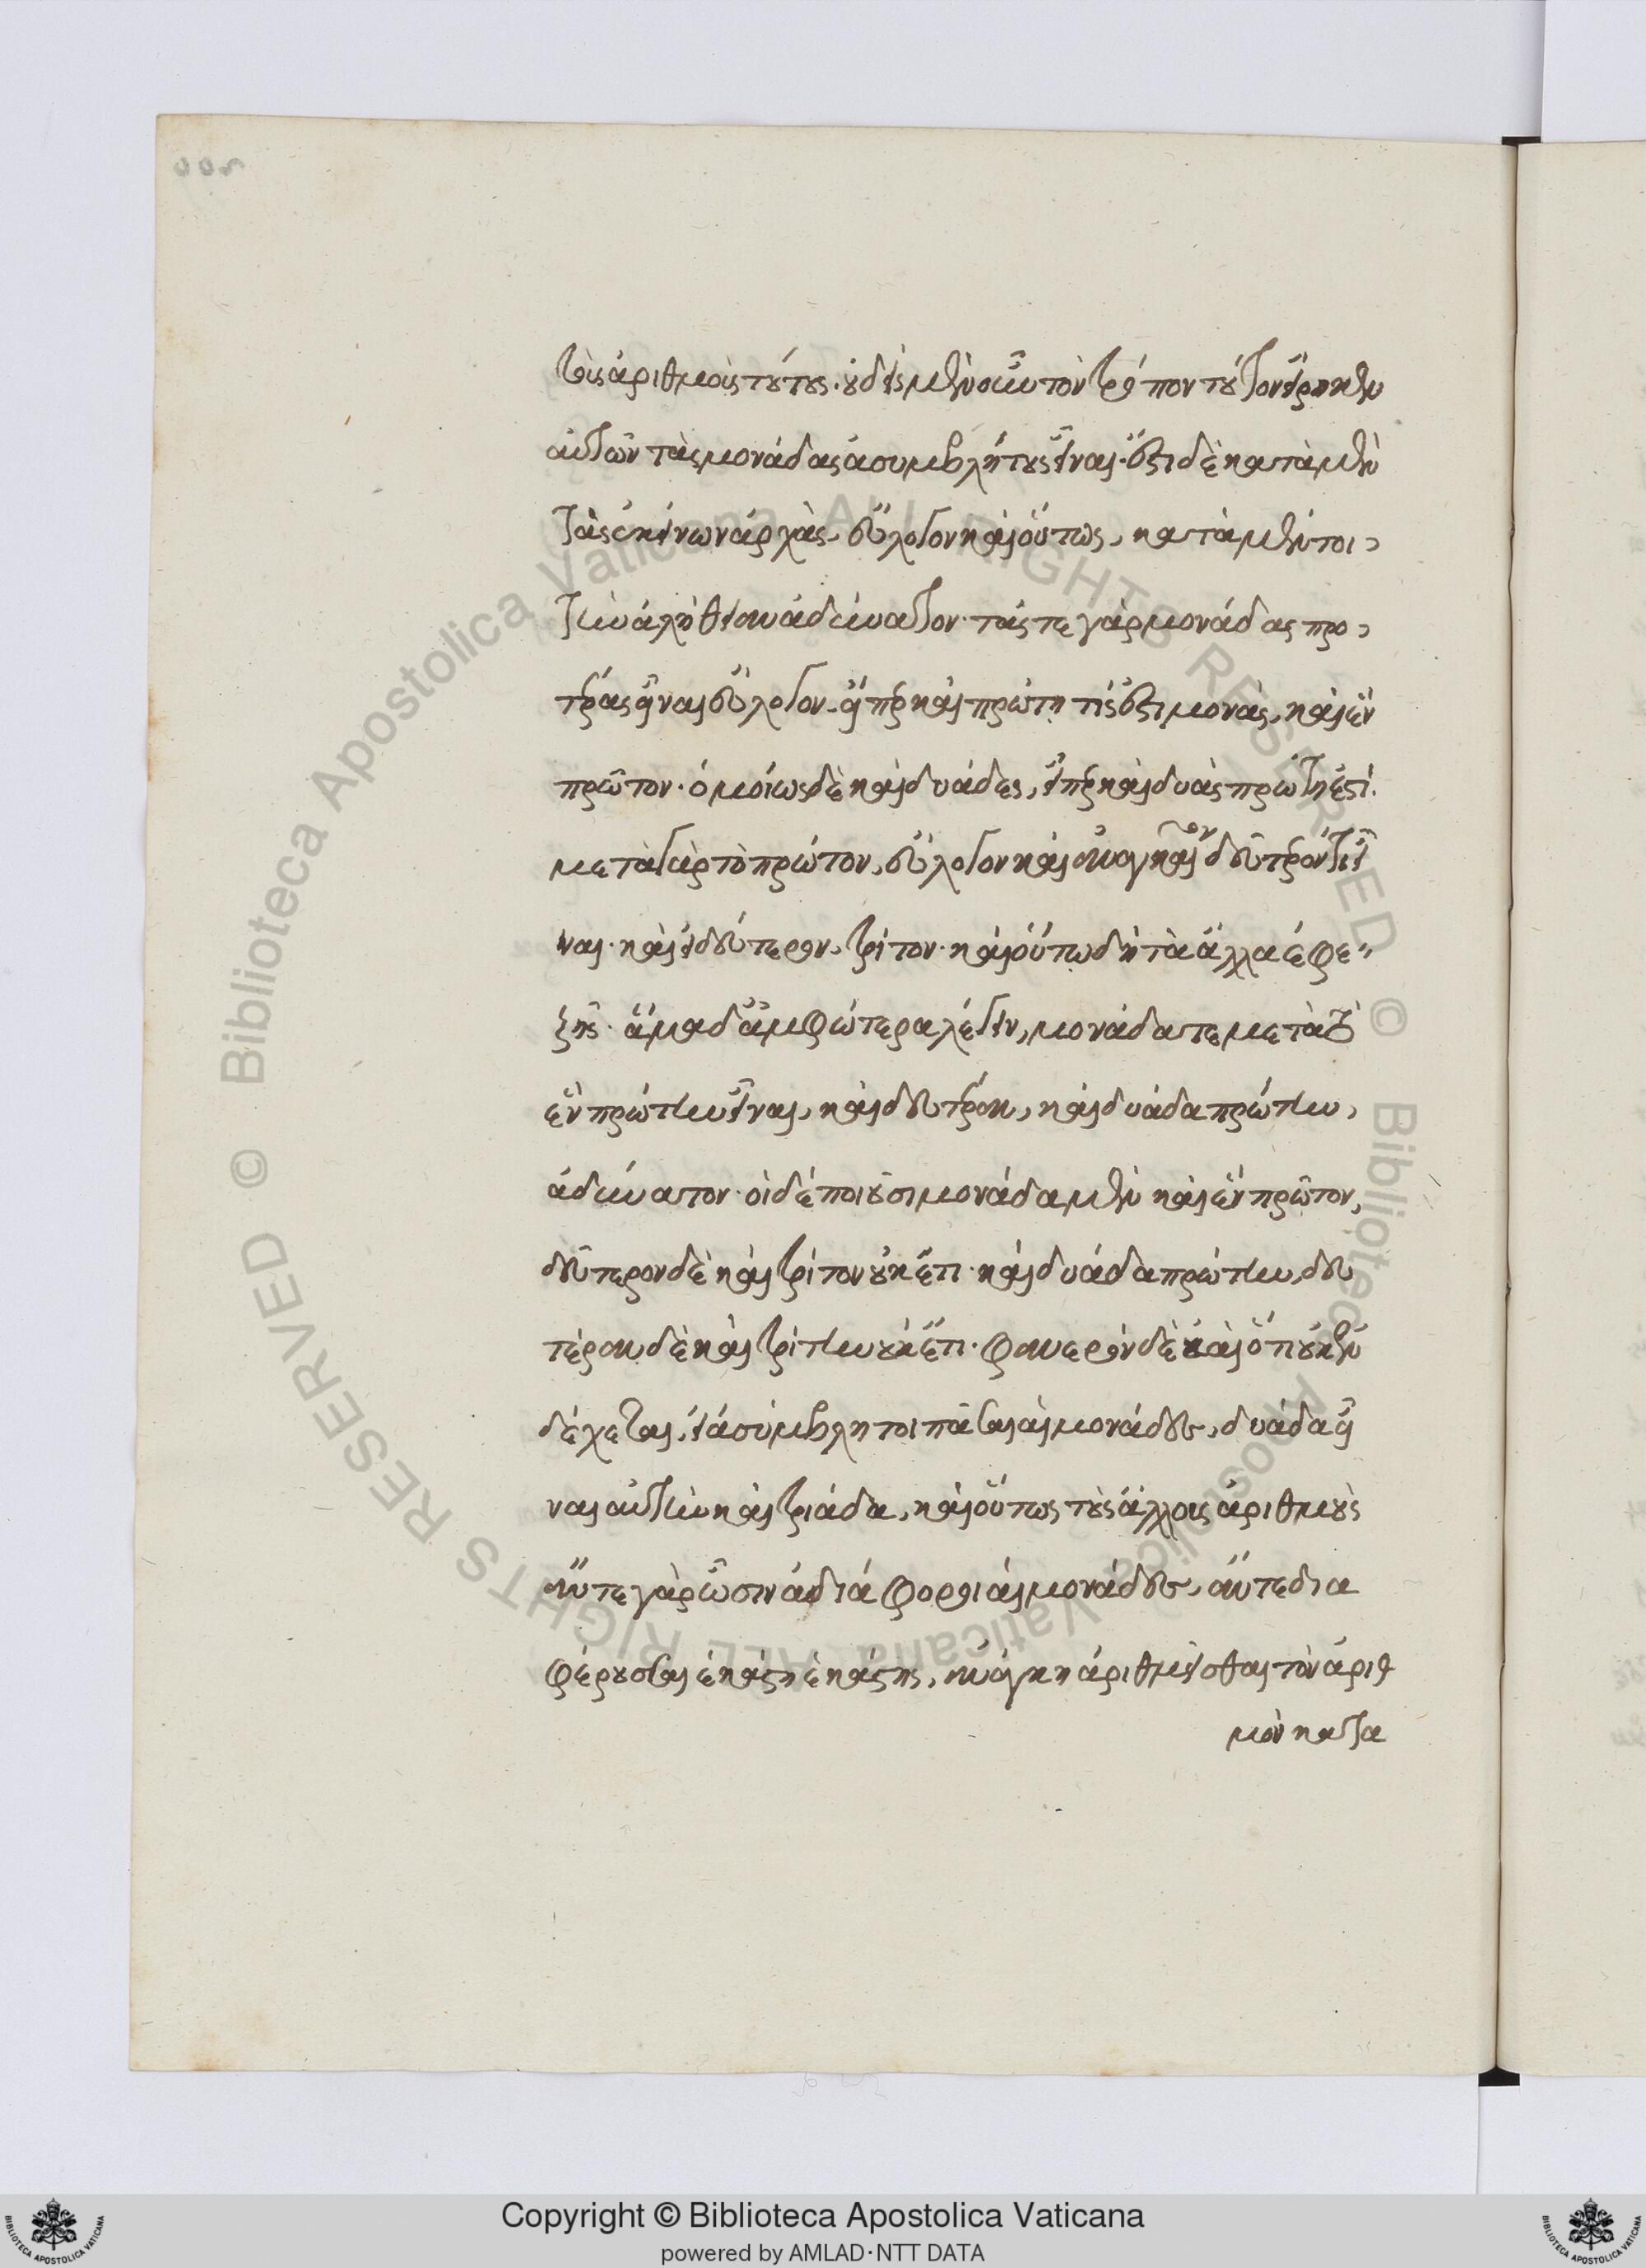 τοῖς ἀριθμοῖς τούτους. οὐδεὶς μὲν οὖν τὸν τρόπον τοῦτον εἴρηκεν
αὐτῶν τὰς μονάδας ἀσυμβλήτους εἶναι. ἔστι δὲ κατὰ μὲν
τὰς ἐκείνων ἀρχὰς εὔλογον καὶ οὕτως, κατὰ μέντοι
τὴν ἀλήθειαν ἀδύνατον. τάς τε γὰρ μονάδας προ
τέρας εἶναι εὔλογον. εἴπερ καὶ πρώτη τίς ἔστι μονὰς, καὶ ἓν
πρῶτον. ὁμοίως δὲ καὶ δυάδες, εἴπερ καὶ δυὰς πρώτη ἐστί.
μετὰ γὰρ τὸ πρώτον, εὔλογον καὶ ἀναγκαῖον δεύτερόν τι εἶ
ναι. καὶ εἰ δεύτερον, τρίτον. καὶ οὕτω δὴ τὰ ἄλλα ἐφε
ξῆς. ἅμα δ' ἀμφώτερα λέγειν, μονάδα τε μετὰ τὸ
ἓν πρώτην εἶναι, καὶ δευτέραν, καὶ δυάδα πρώτην,
ἀδύνατον. οἱ δέ ποιοῦσι μονάδα μὲν καὶ ἓν πρῶτον,
δεύτερον δὲ καὶ τρίτον οὐκ ἔτι. καὶ δυάδα πρώτην, δευ
τέραν δὲ καὶ τρίτην οὐκ ἔτι. φανερὸν δὲ καὶ ὅτι οὐκ ἐν
δέχεται, εἰ ἀσύμβλητοι πᾶσαι αἱ μονάδες, δυάδα εἶ
ναι αὐτὴν καὶ τριάδα, καὶ οὕτως τοὺς ἄλλους ἀριθμοὺς
ἄν τε γὰρ ὦσιν ἀδιάφοροι αἱ μονάδες, ἄν τε δια
φέρουσαι ἑκάστη ἑκάστης, ἀνάγκη ἀριθμεῖσθαι τὸν ἀριθ
μὸν κατὰ